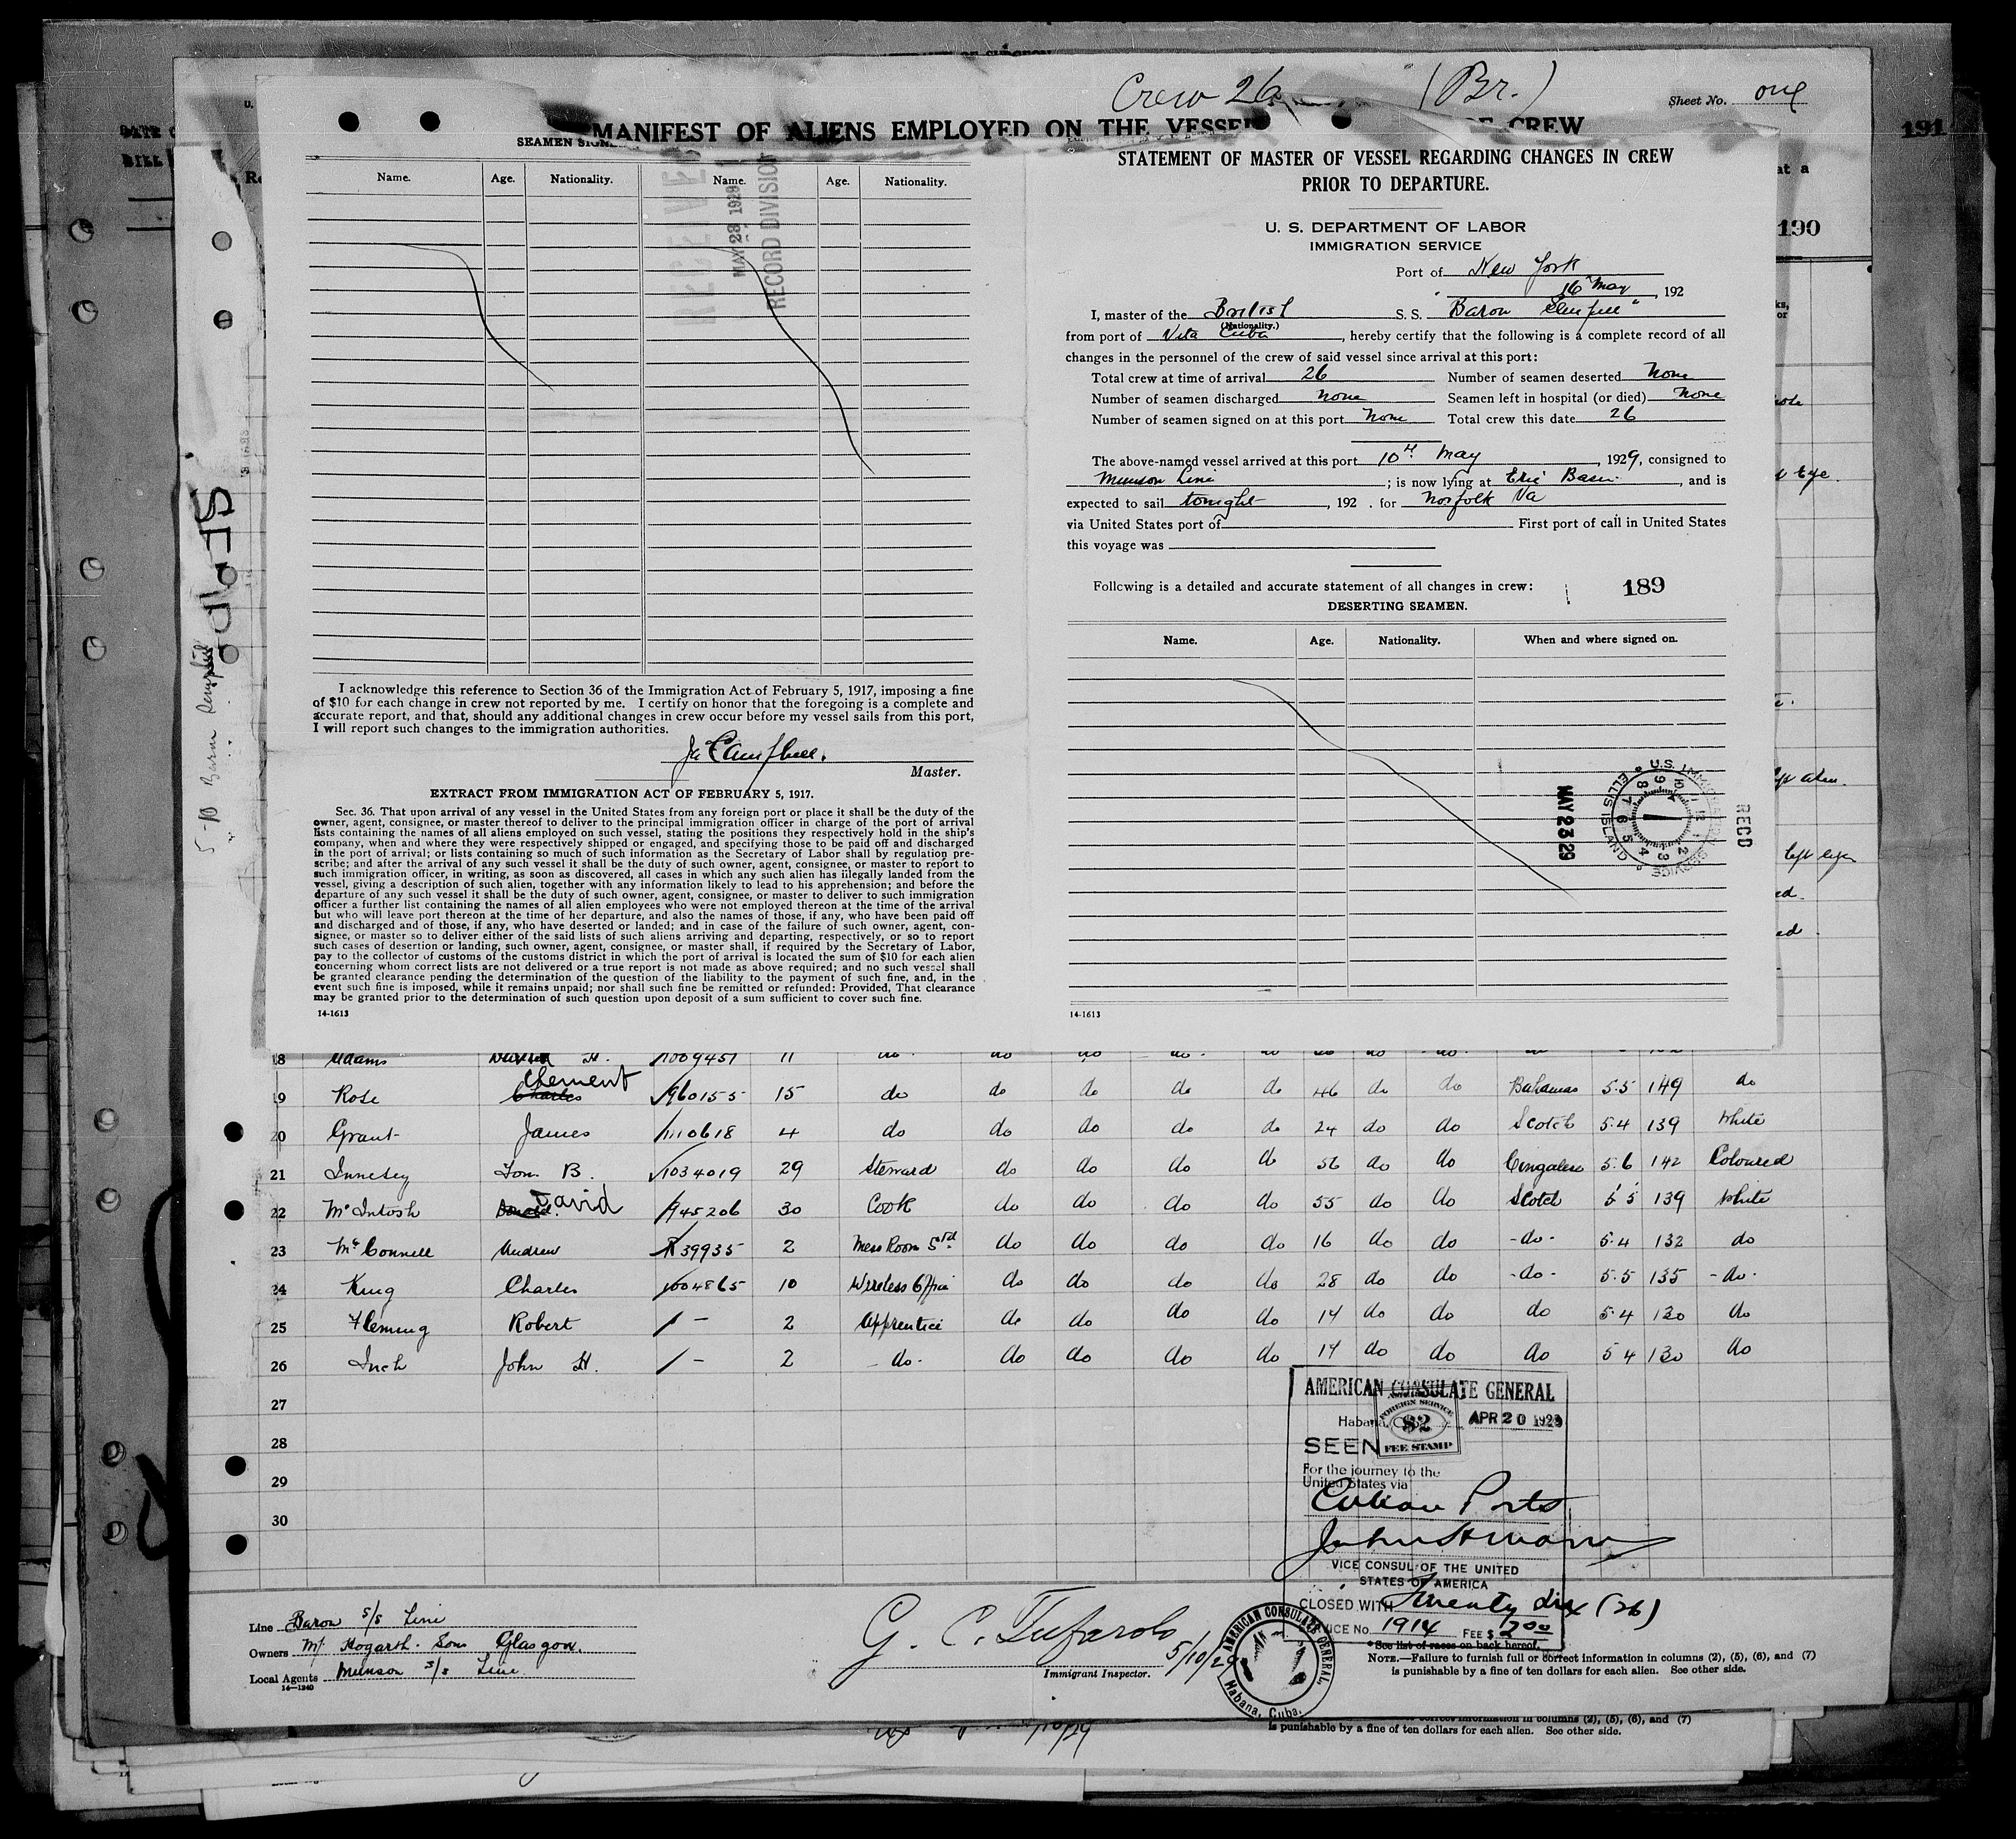 Crew 26 (Br.)
Sheet No. one
MANIFEST OF ALIENS EMPLOYED ON THE VESSEL
OF CREW
191
190
SEAMEN
Name. Age. Nationality. Name. Age. Nationality.
RECEIVED
MAY 23 1929
RECORD DIVISION
I acknowledge this reference to Section 36 of the Immigration Act of February 5, 1917, imposing a fine
of $10 for each change in crew not reported by me. I certify on honor that the foregoing is a complete and
accurate report, and that, should any additional changes in crew occur before my vessel sails from this port,
I will report such changes to the immigration authorities.
Campbell.
Master.
EXTRACT FROM IMMIGRATION ACT OF FEBRUARY 5, 1917.
Sec. 36. That upon arrival of any vessel in the United States from any foreign port or place it shall be the duty of the
owner, agent, consignee, or master thereof to deliver to the principal immigration officer in charge of the port of arrival
lists containing the names of all aliens employed on such vessel, stating the positions they respectively hold in the ship's
company, when and where they were respectively shipped or engaged, and specifying those to be paid off and discharged
in the port of arrival; or lists containing so much of such information as the Secretary of Labor shall by regulation pre-
scribe; and after the arrival of any such vessel it shall be the duty of such owner, agent, consignee, or master to report to
such immigration officer, in writing, as soon as discovered, all cases in which any such alien has illegally landed from the
vessel, giving a description of such alien, together with any information likely to lead to his apprehension; and before the
departure of any such vessel it shall be the duty of such owner, agent, consignee, or master to deliver to such immigration
officer a further list containing the names of all alien employees who were not employed thereon at the time of the arrival
but who will leave port thereon at the time of her departure, and also the names of those, if any, who have been paid off
and discharged and of those, if any, who have deserted or landed; and in case of the failure of such owner, agent, con-
signee, or master so to deliver either of the said lists of such aliens arriving and departing, respectively, or so to report
such cases of desertion or landing, such owner, agent, consignee, or master shall, if required by the Secretary of Labor,
pay to the collector of customs of the customs district in which the port of arrival is located the sum of $10 for each alien
concerning whom correct lists are not delivered or a true report is not made as above required; and no such vessel shall
be granted clearance pending the determination of the question of the liability to the payment of such fine, and, in the
event such fine is imposed, while it remains unpaid; nor shall such fine be remitted or refunded: Provided, That clearance
may be granted prior to the determination of such question upon deposit of a sum sufficient to cover such fine.
14-1613
STATEMENT OF MASTER OF VESSEL REGARDING CHANGES IN CREW
PRIOR TO DEPARTURE.
U. S. DEPARTMENT OF LABOR
IMMIGRATION SERVICE
Port of New York
16 May, 192
I, master of the British S. S. Baron
(Nationality.)
from port of Vita Cuba, hereby certify that the following is a complete record of all
changes in the personnel of the crew of said vessel since arrival at this port:
Total crew at time of arrival 26 Number of seamen deserted None
Number of seamen discharged None Seamen left in hospital (or died) None
Number of seamen signed on at this port None Total crew this date 26
The above-named vessel arrived at this port 10th May, 1929, consigned to
Munson Line; is now lying at Erie Basin, and is
expected to sail tonight, 192 . for Norfolk Va
via United States port of First port of call in United States
this voyage was
Following is a detailed and accurate statement of all changes in crew:
189
DESERTING SEAMEN.
Name. Age. Nationality. When and where signed on.
U.S. IMMIGRATION SERVICE ELLIS ISLAND
MAY 23 29
RECD
14-1613
18 Adams David H. 1009451 11
19 Rose Charles Clement 960155 15 do do do do do 46 do do Bahamas 5.5 149 do
20 Grant James 1110618 4 do do do do do 24 do do Scotch 5.4 139 White
21 Innesey Tom. B. 1034019 29 Steward do do do do 56 do do Cingalese 5.6 142 Coloured
22 McIntosh David 945206 30 Cook do do do do 55 do do Scotch 5 5 139 White
23 McConnell Andrew R39935 2 Mess Room Std do do do do 16 do do -do- 5.4 132 do
24 King Charles 1004865 10 Wireless do do do do 28 do do -do- 5.5 135 -do-
25 Fleming Robert - 2 Apprentice do do do do 17 do do do 5.4 130 do
26 Inch John H. - 2 -do- do do do do 17 do do do 5 4 130 do
27
28
29
30
AMERICAN CONSULATE GENERAL
Habana, APR 20 1929
FOREIGN SERVICE $2 FEE STAMP
SEEN
For the journey to the
United States via
Cuban Ports
VICE CONSUL OF THE UNITED
STATES OF AMERICA
CLOSED WITH Twenty six (26)
SERVICE No. 1914 FEE $ 2.00
AMERICAN CONSULATE GENERAL. Habana, Cuba.
Line Baron S/S Line
Owners Mr Hogarth. Sons Glasgow.
Local Agents Munson S/S Line
14-1240
G. C. Tufarolo 5/10/29
Immigrant Inspector.
*See list of races on back hereof.
NOTE.—Failure to furnish full or correct information in columns (2), (5), (6), and (7)
is punishable by a fine of ten dollars for each alien. See other side.
is punishable by a fine of ten dollars for each alien. See other side.